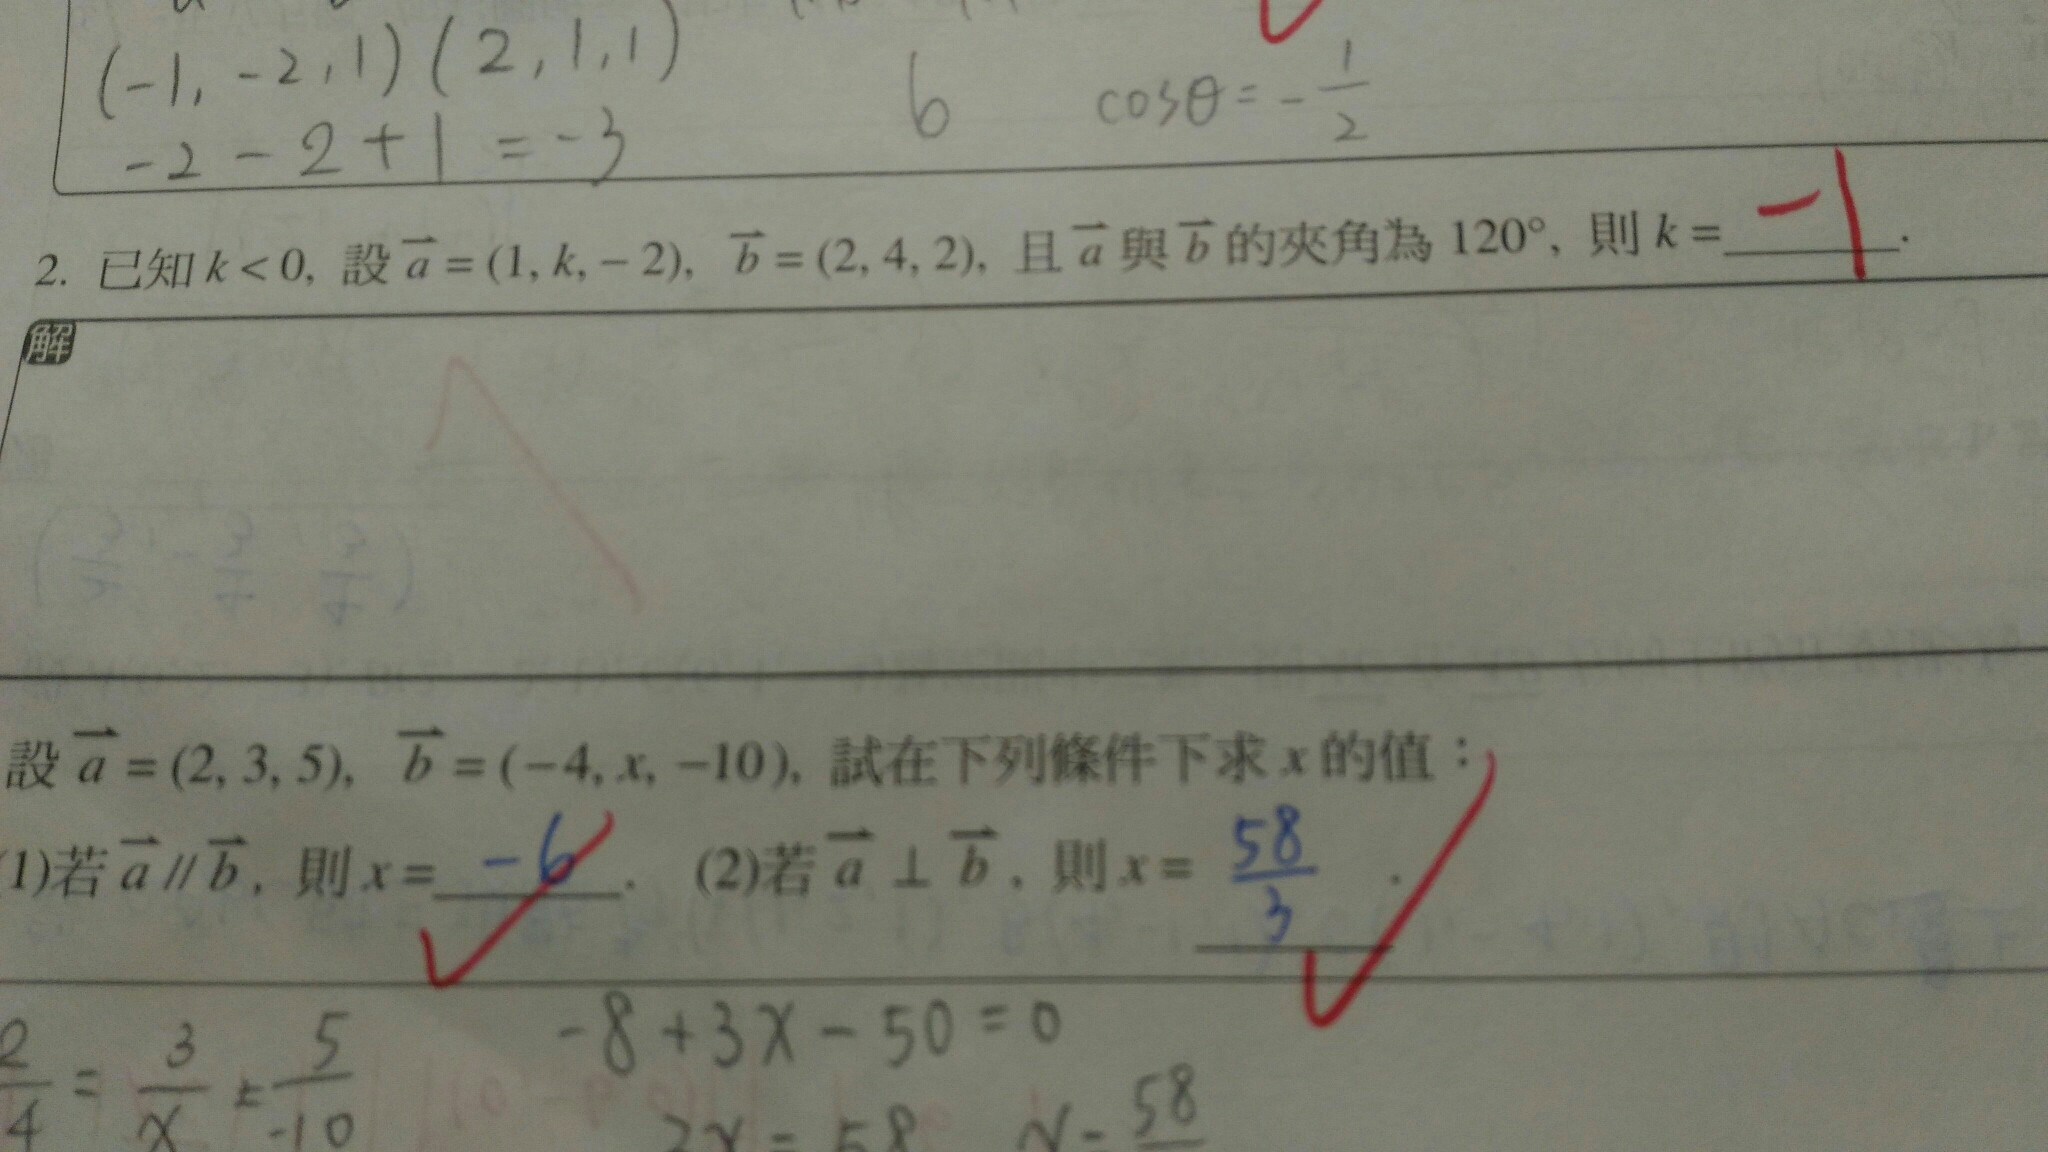 (-1, -2, 1) (2, 1, 1)
-2 - 2 + 1 = -3
6 cosθ = -1/2
2. 已知 k < 0, 設 a⃗ = (1, k, −2), b⃗ = (2, 4, 2), 且 a⃗ 與 b⃗ 的夾角為 120°, 則 k = -1.
解
設 a⃗ = (2, 3, 5), b⃗ = (−4, x, −10), 試在下列條件下求 x 的值：
(1)若 a⃗ // b⃗, 則 x = -6. (2)若 a⃗ ⊥ b⃗, 則 x = 58/3.
2/4 = 3/x = 5/-10
-8 + 3x - 50 = 0
3x = 58 x = 58